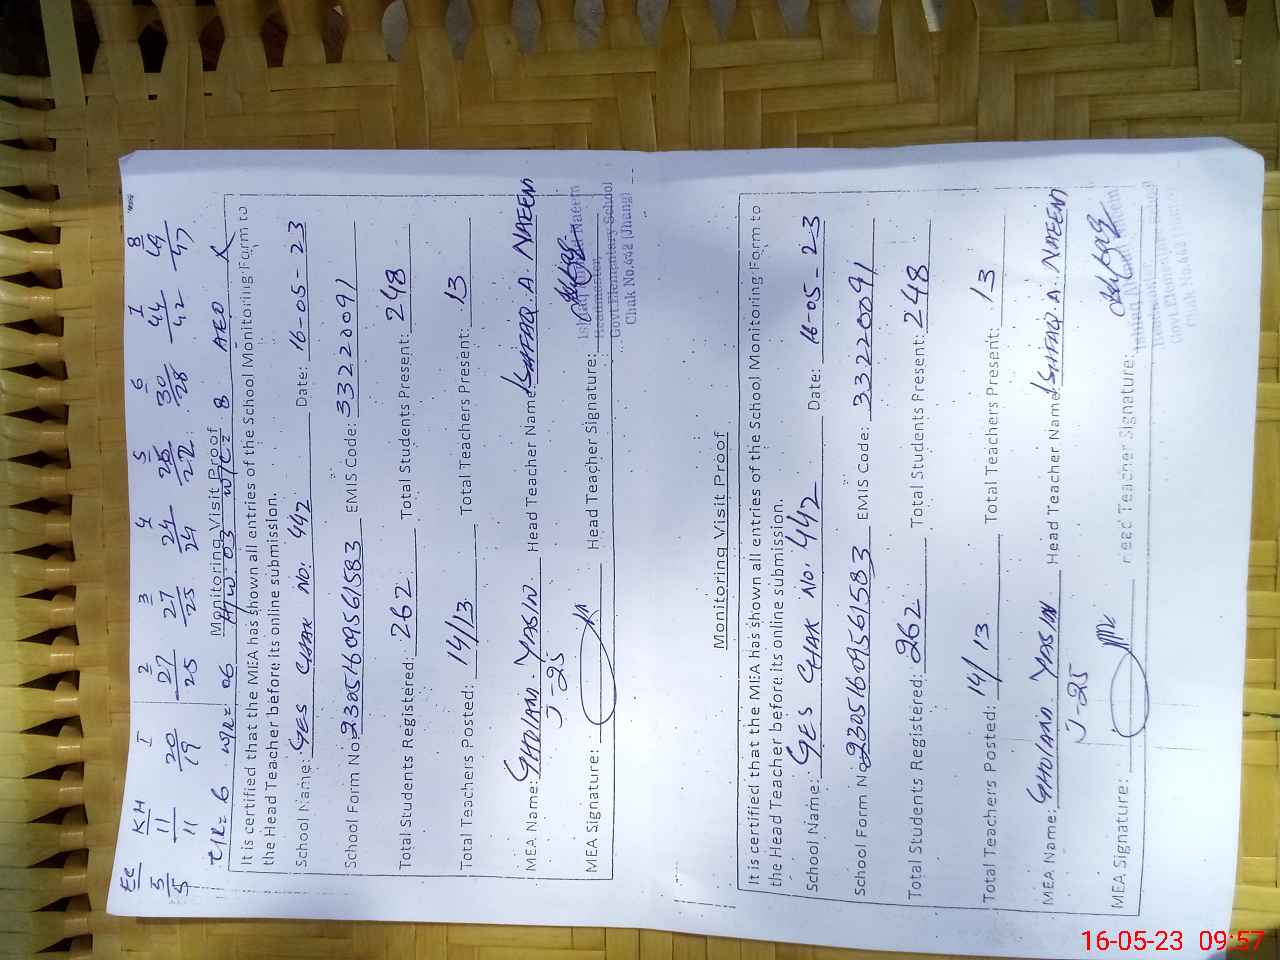 Ec KH I 2 3 4 5 6 7 8
5 11 20 27 27 24 25 30 44 49
5 11 19 25 25 24 22 28 42 47
C/R= 6 W/R= 06 H/W. 03 W/C= 8 AEO X
Monitoring Visit Proof
It is certified that the MEA has shown all entries of the School Monitoring Form to
the Head Teacher before its online submission.
School Name: GES CHAK NO: 442 Date: 16-05-23
School Form No 23051609561583 EMIS Code: 33220091
Total Students Registered: 262 Total Students Present: 248
Total Teachers Posted: 14/13 Total Teachers Present: 13
MEA Name: GHULAM. YASIN Head Teacher Name ISHFAQ. A. NAEEM
J-25
MEA Signature: Head Teacher Signature:
Headmaster
Govt Elementary School
Chak No.442 (Jhang)
Monitoring Visit Proof
It is certified that the MEA has shown all entries of the School Monitoring Form to
the Head Teacher before its online submission.
School Name: GES CHAK NO: 442 Date: 16-05-23
School Form No 23051609561583 EMIS Code: 33220091
Total Students Registered: 262 Total Students Present: 248
Total Teachers Posted: 14/13 Total Teachers Present: 13
MEA Name: GHULAM. YASIN Head Teacher Name ISHFAQ. A. NAEEM
J-25
MEA Signature: Head Teacher Signature:
Govt Elementary School
Chak No.442 (Jhang)
16-05-23 09:57